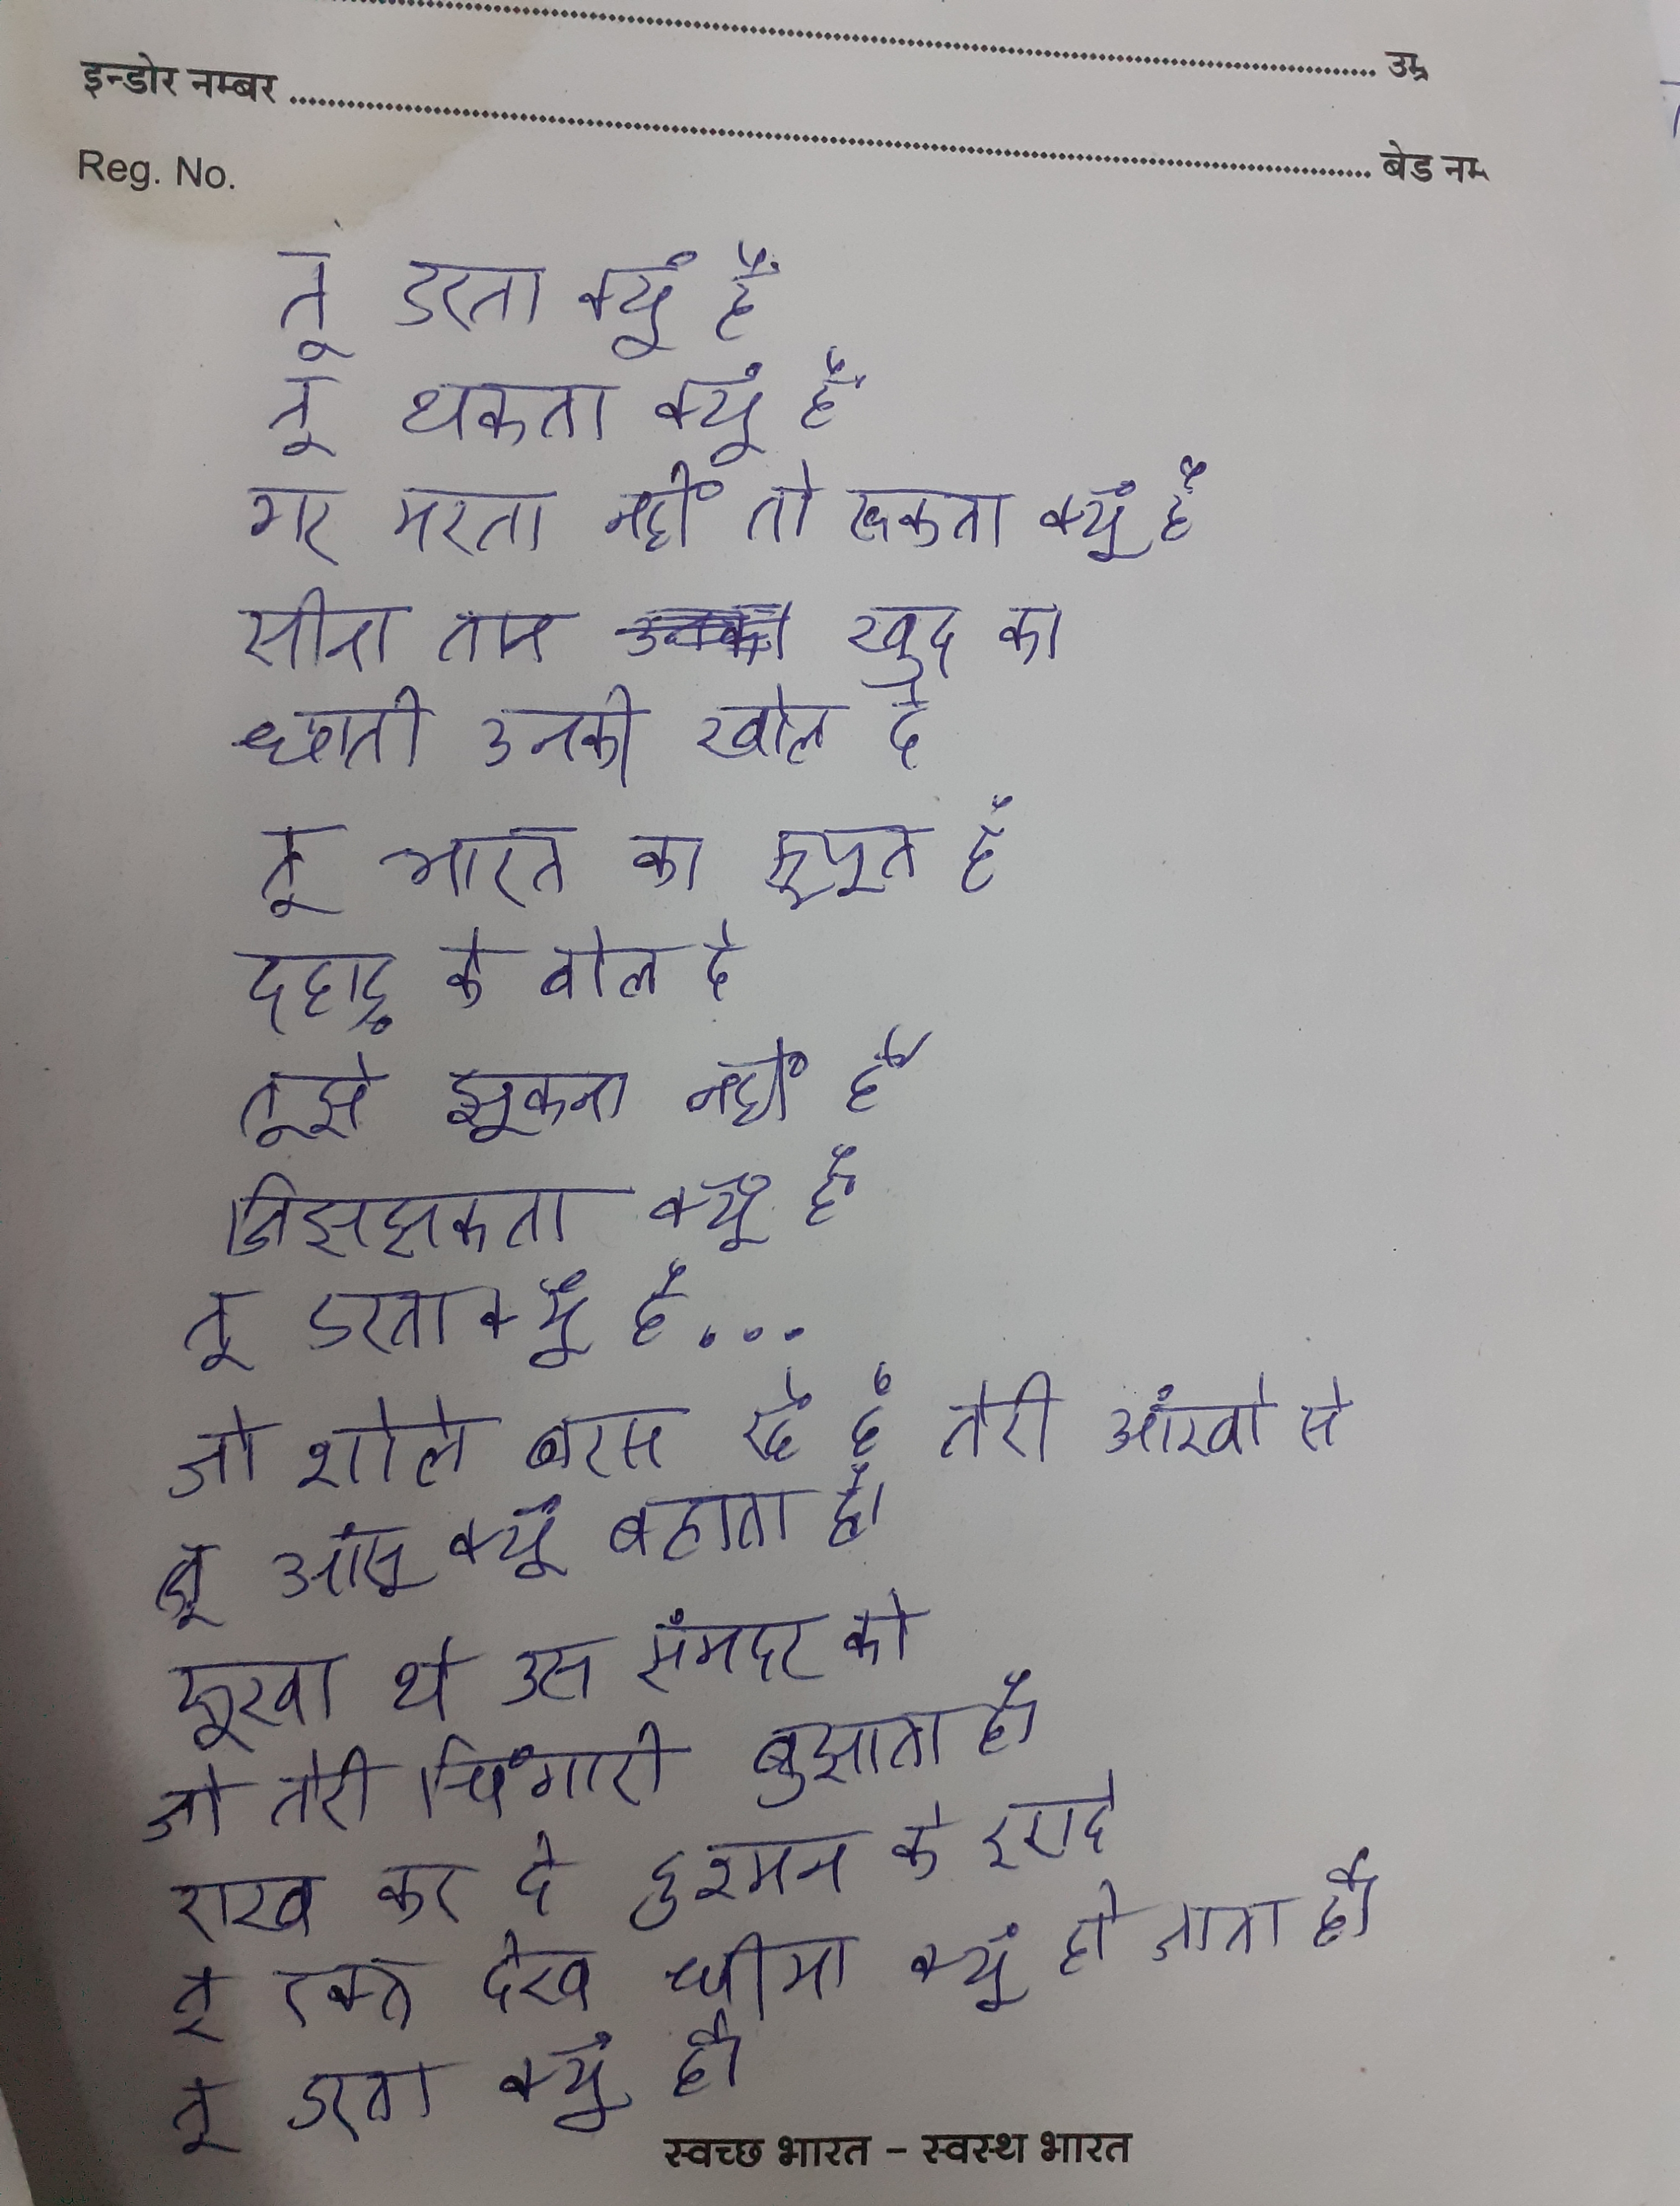 उम्र
इन्डोर नम्बर
बेड नम
Reg. No.
तू डरता क्यूं है
तू थकता क्यूं है
गर मरता नहीं तो रूकता क्यूं है
सीना तान खुद का
छाती उनकी खोल दे
तू भारत का सूपूत है
दहाड़ के बोल दे
तूझे झूकना नहीं है
झिझकता क्यूं है
तू डरता क्यूं है...
जो शोले बरस रहे है तेरी आंखो से
तू आंसू क्यूं बहाता है।
सूखा दे उस संमदर को
जो तेरी चिंगारी बुझाता है।
राख कर दे दुश्मन के इरादे
तू रक्त देख धीमा क्यूं हो जाता है।
तू डरता क्यूं है।
स्वच्छ भारत – स्वस्थ भारत